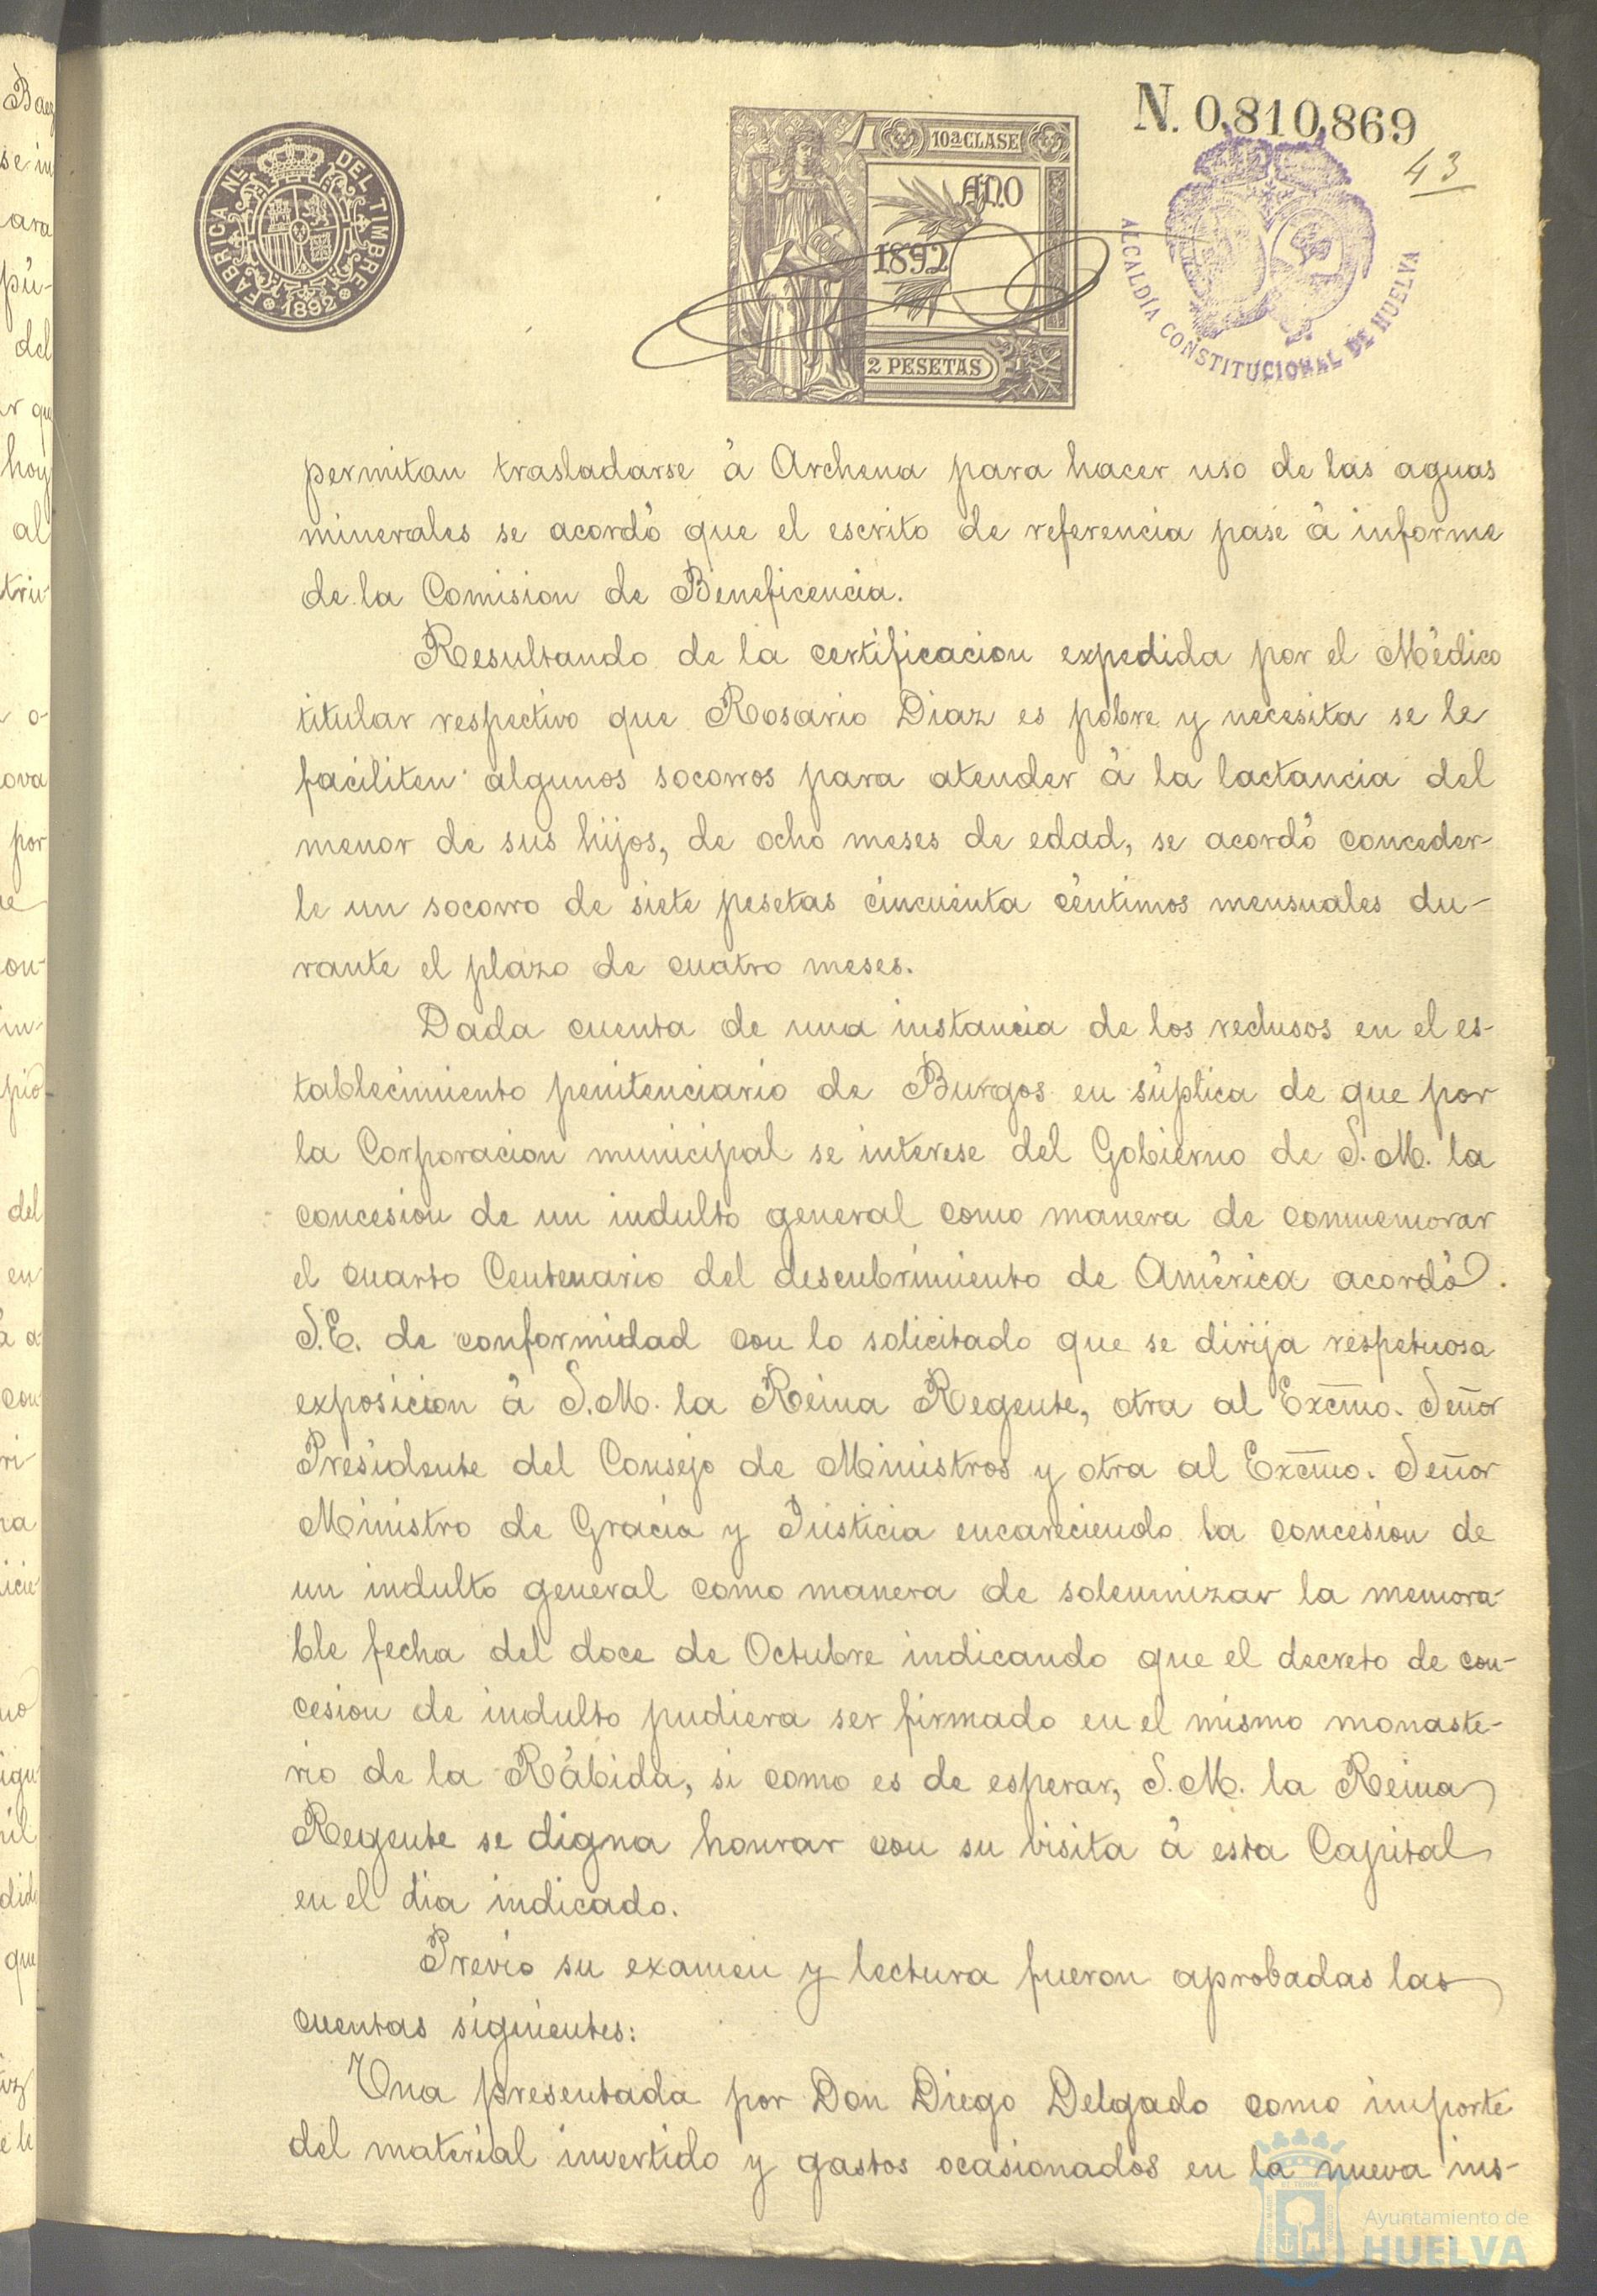 N. 0,810,869
43
FABRICA NL. DEL TIMBRE
1892
10ª CLASE
AÑO
1892
2 PESETAS
ALCALDÍA CONSTITUCIONAL DE HUELVA
permitan trasladarse á Archena para hacer uso de las aguas
minerales se acordó que el escrito de referencia pase á informe
de la Comision de Beneficencia.
Resultando de la certificacion expedida por el Médico
titular respectivo que Rosario Diaz es pobre y necesita se le
faciliten algunos socorros para atender á la lactancia del
menor de sus hijos, de ocho meses de edad, se acordó conceder-
le un socorro de siete pesetas cincuenta céntimos mensuales du-
rante el plazo de cuatro meses.
Dada cuenta de una instancia de los reclusos en el es-
tablecimiento penitenciario de Burgos en súplica de que por
la Corporacion municipal se interese del Gobierno de S. M. la
concesion de un indulto general como manera de conmemorar
el cuarto Centenario del descubrimiento de América acordó
S. E. de conformidad con lo solicitado que se dirija respetuosa
exposicion á S. M. la Reina Regente, otra al Excmo. Señor
Presidente del Consejo de Ministros y otra al Excmo. Señor
Ministro de Gracia y Justicia encareciendo la concesion de
un indulto general como manera de solemnizar la memora-
ble fecha del doce de Octubre indicando que el decreto de con-
cesion de indulto pudiera ser firmado en el mismo monaste-
rio de la Rábida, si como es de esperar, S. M. la Reina
Regente se digna honrar con su visita á esta Capital
en el dia indicado.
Previo su examen y lectura fueron aprobadas las
cuentas siguientes:
Una presentada por Don Diego Delgado como importe
del material invertido y gastos ocasionados en la nueva ins-
Ayuntamiento de
HUELVA